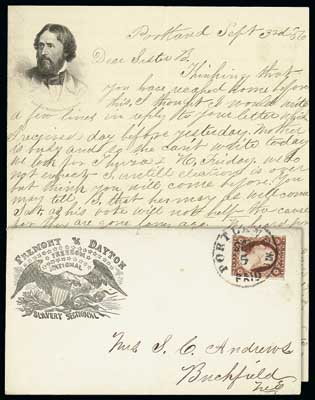 Portland Sept 3rd 56
Dear Sister B.
Thinking that
you have reached home before
this, I thought I would write
a few lines in reply to your letter which
I received day before yesterday. Mother
is busy and so she can't write today
we look for & H. Friday. we do
not expect S. untill election is over
but think you will come before. You
may tell S. that he may as well come
as his vote will not help the cause
for are gone
FREMONT & DAYTON
FREEDOM
NATIONAL
SLAVERY SECTIONAL
PORTLAND
Mrs S. C. Andrews
Buckfield
Me